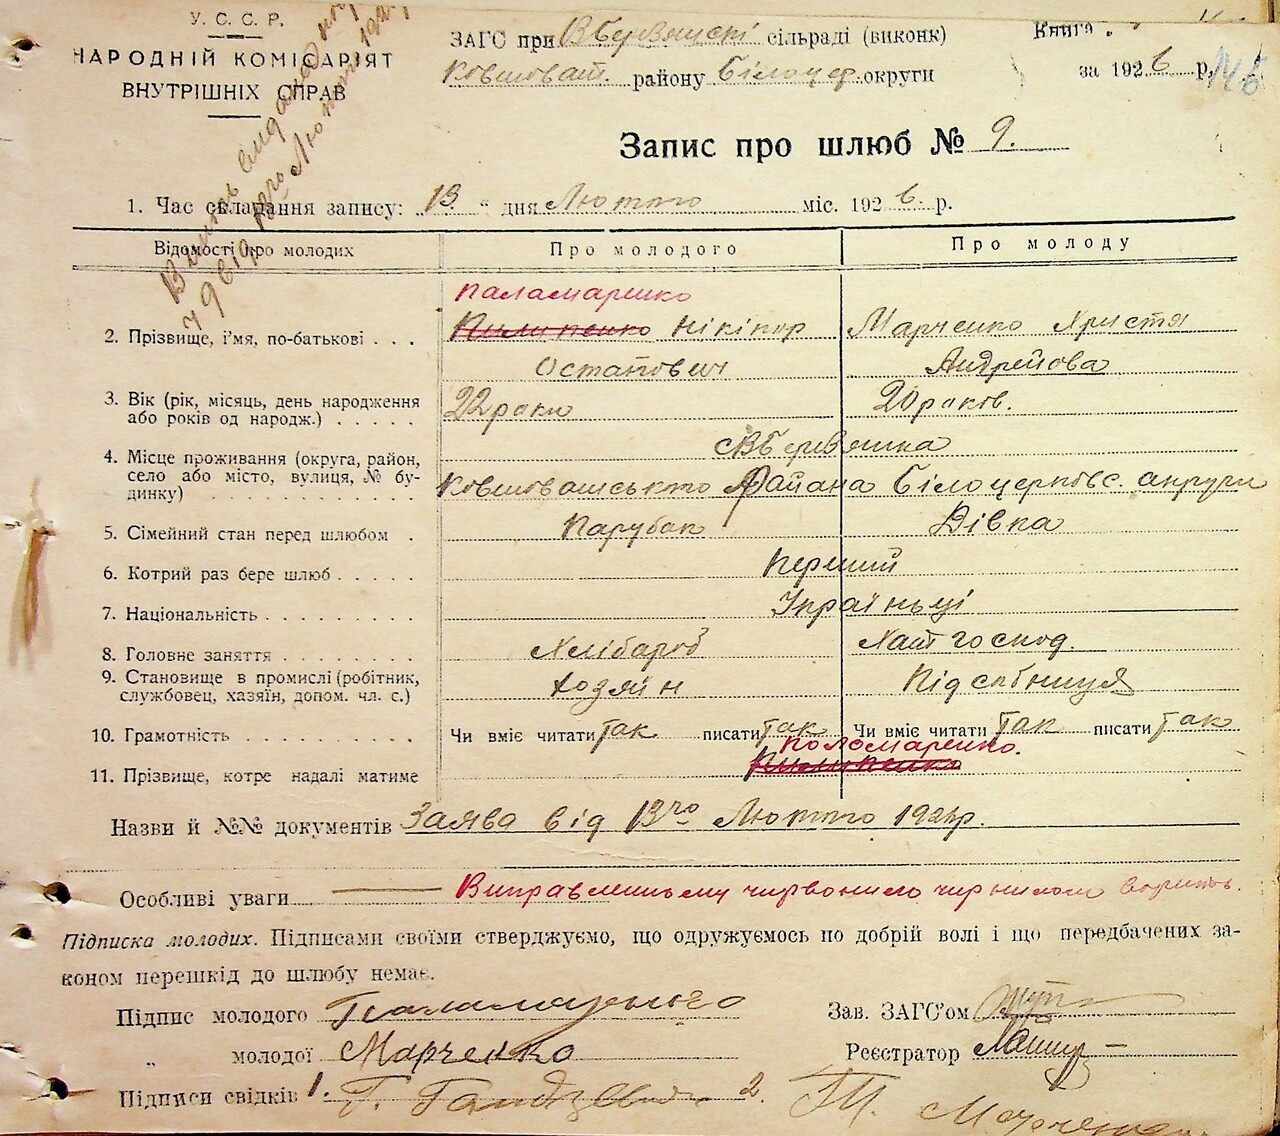 У. С. С. Р.
НАРОДНІЙ КОМІСАРІЯТ
ВНУТРІШНІХ СПРАВ
ЗАГС при сільраді (виконк)
Ковшоват. району Білоцер. округи
Книга
за 1926 р. 146
Запис про шлюб № 9.
1. Час складання запису: 13 " дня Лютого міс. 1926 р.
Відомості про молодих Про молодого Про молоду
Паламаренко
2. Прізвище, і'мя, по-батькові . . . Пилипенко Нікіпор Марченко Христя
Остапович Андреїова
3. Вік (рік, місяць, день народження 22 роки 20 роков.
або років од народж.) . . . . .
4. Місце проживання (округа, район,
село або місто, вулиця, № бу-
динку) Ковшоватського Району Білоцерковс. округи
5. Сімейний стан перед шлюбом . Парубок Дівка
6. Котрий раз бере шлюб . . . . . Перший
7. Національність . . . . . . . . . Україньці
8. Головне заняття . . . . . . . . Хлібороб Хат господ.
9. Становище в промислі (робітник, Хозяїн Підсобниця
службовец, хазяїн, допом. чл. с.)
10. Грамотність . . . . . . . . . . Чи вміє читати так писати так Чи вміє читати так писати так
Поломаренко.
11. Прізвище, котре надалі матиме Пилипенко
Назви й №№ документів Заява від 13го Лютого 192 р.
Особливі уваги Виправлиньому чирвоним чирнилом
Підписка молодих. Підписами своїми стверджуємо, що одружуємось по добрій волі і що передбачених за-
коном перешкід до шлюбу немає.
Підпис молодого Зав. ЗАГС'ом
„ молодої Марченко Реєстратор
Підписи свідків 1. Г. 2. Т. Марченко